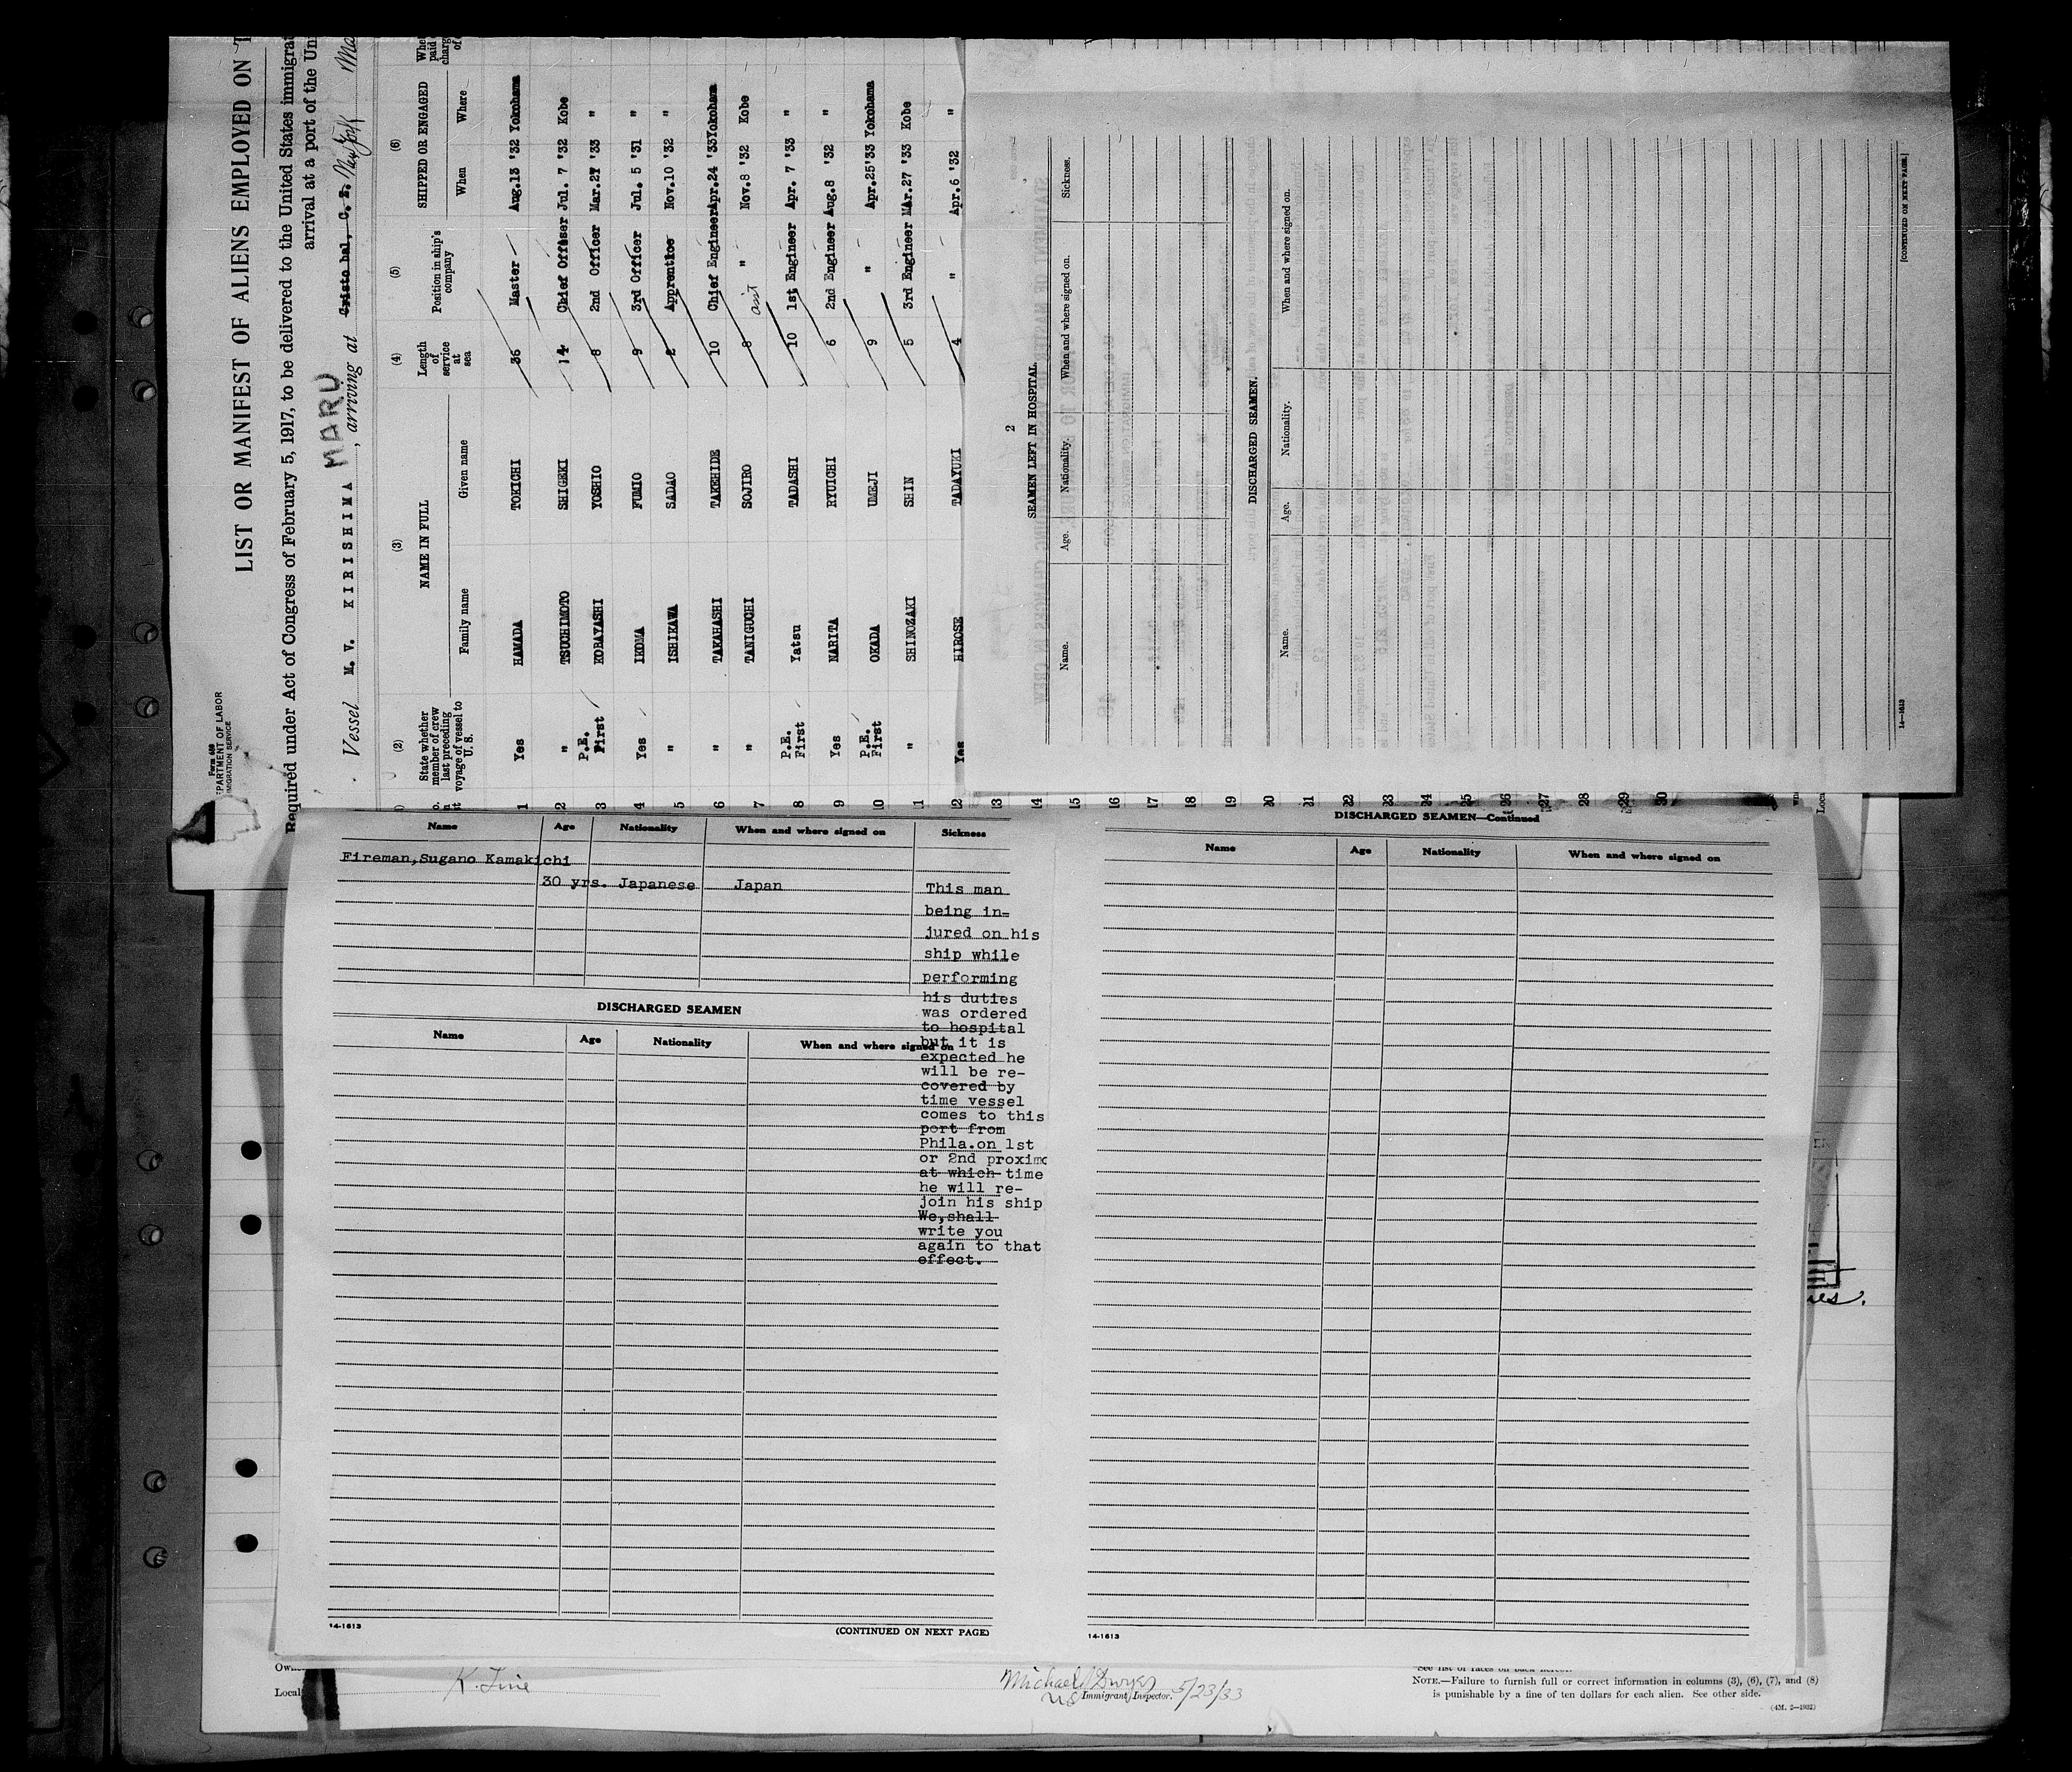 Form 689
DEPARTMENT OF LABOR
IMMIGRATION SERVICE
LIST OR MANIFEST OF ALIENS EMPLOYED ON T
Required under Act of Congress of February 5, 1917, to be delivered to the United States immigrat
arrival at a port of the Uni
Vessel M. V. KIRISHIMA MARU, arriving at Cristobal, C. Z. New York
(2) (3) (4) (5) (6)
State whether member of crew last preceding voyage of vessel to U. S.
NAME IN FULL
Family name Given name
Length of service at sea
Position in ship's company
SHIPPED OR ENGAGED
When Where
1 Yes HAMADA TOKICHI 36 Master Aug.13 '32 Yokohama
2 " TSUCHIMOTO SHIGEKI 14 Chief Officer Jul. 7 '32 Kobe
3 P.E. First KOBAYASHI YOSHIO 8 2nd Officer Mar.27 '33 "
4 Yes IKOMA FUMIO 9 3rd Officer Jul. 5 '31 "
5 " ISHIKAWA SADAO 2 Apprentice Nov.10 '32 "
6 " TAKAHASHI TAKEHIDE 10 Chief Engineer Apr.24 '33 Yokohama
7 " TANIGUCHI SOJIRO 8 " Nov.8 '32 Kobe
8 P.E. First Yatsu TADASHI 10 1st Engineer Apr. 7 '33 "
9 Yes NARITA RYUICHI 6 2nd Engineer Aug.8 '32 "
10 P.E. First OKADA UMEJI 9 " Apr.25'33 Yokohama
11 " SHINOZAKI SHIN 5 3rd Engineer Mar.27 '33 Kobe
12 Yes HIROSE TADAYUKI 4 " Apr.6 '32 "
13
14
15
16
17
18
19
20
21
22
23
24
25
26
27
28
29
30
2
SEAMEN LEFT IN HOSPITAL.
Name. Age. Nationality. When and where signed on. Sickness.
DISCHARGED SEAMEN.
Name. Age. Nationality. When and where signed on.
[CONTINUED ON NEXT PAGE.]
14—1613
Name Age Nationality When and where signed on Sickness
Fireman,Sugano Kamakichi
30 yrs. Japanese Japan This man
being in-
jured on his
ship while
performing
his duties
was ordered
to hospital
but it is
expected he
will be re-
covered by
time vessel
comes to this
port from
Phila.on 1st
or 2nd proximo
at which time
he will re-
join his ship
We,shall
write you
again to that
effect.
DISCHARGED SEAMEN
Name Age Nationality When and where signed on
14-1613
(CONTINUED ON NEXT PAGE)
DISCHARGED SEAMEN—Continued
Name Age Nationality When and where signed on
14-1613
Local
K. Line
Michael Dwyer
US Immigrant Inspector. 5/23/33
See list of races on back hereof.
NOTE.—Failure to furnish full or correct information in columns (3), (6), (7), and (8)
is punishable by a fine of ten dollars for each alien. See other side.